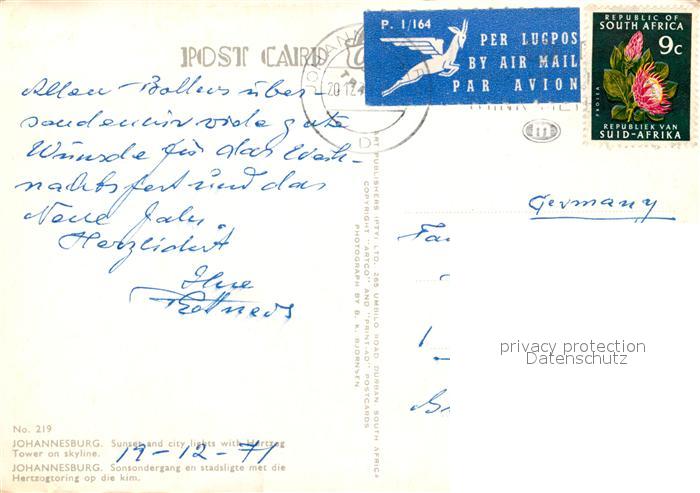 POST CARD
P. 1/164
PER LUGPOS
BY AIR MAIL
PAR AVION
REPUBLIC OF
SOUTH AFRICA
9c
PROTEA
REPUBLIEK VAN
SUID-AFRIKA
Allen
über-
senden wir viele gute
Wünsche für das Weih-
nachtsfest und das
Neue Jahr
Herzlichst
Ihre
Germany
privacy protection
Datenschutz
ART PUBLISHERS (PTY) LTD. 265 UMBILO ROAD, DURBAN SOUTH AFRICA
COPYRIGHT "ARTCO" AND "PRINT-AD" POSTCARDS
PHOTOGRAPH BY B. K. BJORNSEN
No. 219
JOHANNESBURG. Sunset and city lights with Hertzog
Tower on skyline.
19-12-71
JOHANNESBURG. Sonsondergang en stadsligte met die
Hertzogtoring op die kim.